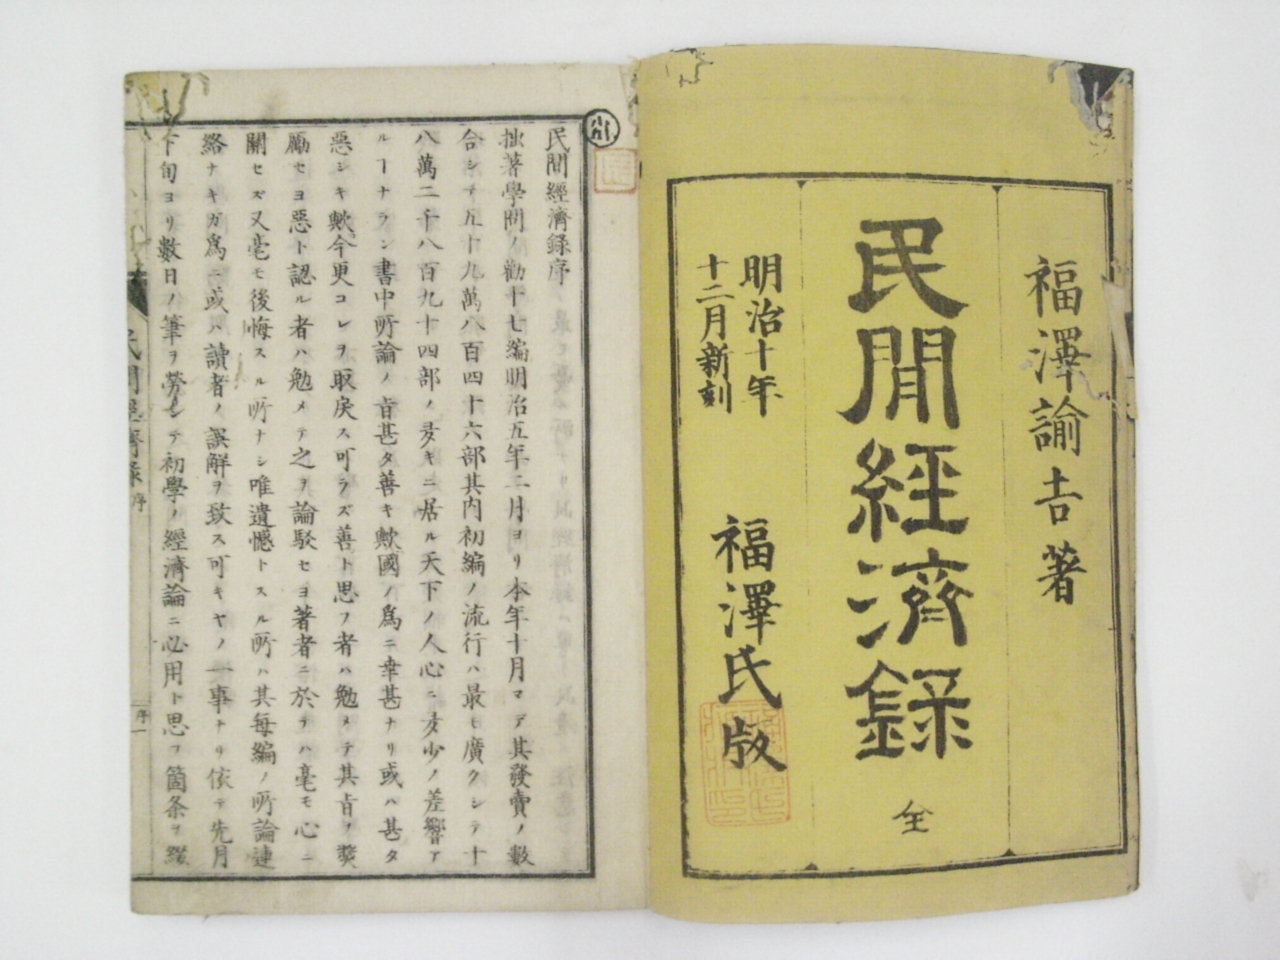 福澤諭吉著
民間經濟録
全
明治十年
十二月新刻
福澤氏版
民間經濟録序
拙著學問ノ勸十七編明治五年二月ヨリ本年十月マデ其發賣ノ數
合シテ五十九萬八百四十六部其内初編ノ流行ハ最モ廣クシテ十
八萬二千八百九十四部ノ多キニ居ル天下ノ人心ニ多少ノ差響ア
ルヿナラン書中所論ノ旨甚タ善キ歟國ノ爲ニ幸甚ナリ或ハ甚タ
惡シキ歟今更コレヲ取戾ス可ラズ善ト思フ者ハ勉メテ其旨ヲ奬
勵セヨ惡ト認ル者ハ勉メテ之ヲ論駁セヨ著者ニ於テハ毫モ心ニ
關セズ又毫モ後悔スル所ナシ唯遺憾トスル所ハ其每編ノ所論連
絡ナキガ爲ニ或ハ讀者ノ誤解ヲ致ス可キヤノ一事ナリ依テ先月
下旬ヨリ數日ノ筆ヲ勞シテ初學ノ經濟論ニ必用ト思フ箇条ヲ綴
民間經濟録 序
序一